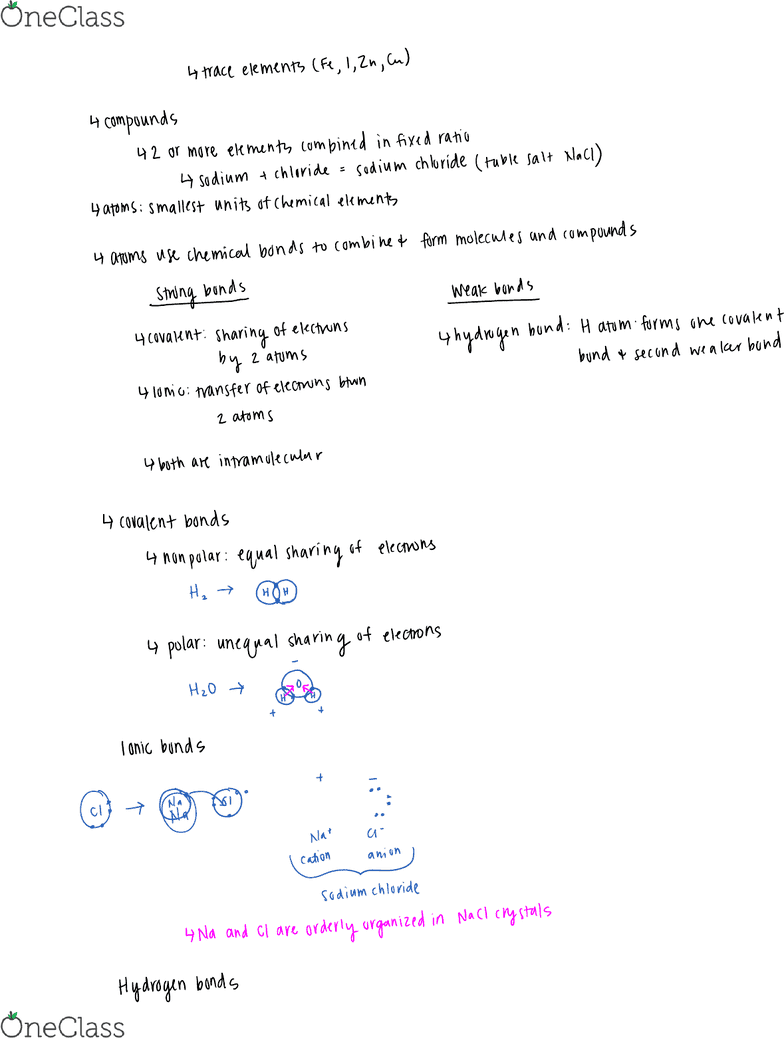 OneClass
↳ trace elements (Fe, I, Zn, Cu)
↳ compounds
↳ 2 or more elements combined in fixed ratio
↳ sodium + chloride = sodium chloride (table salt NaCl)
↳ atoms: smallest units of chemical elements
↳ atoms use chemical bonds to combine + form molecules and compounds
Strong bonds
↳ covalent: sharing of electrons
by 2 atoms
↳ Ionic: transfer of electrons btwn
2 atoms
↳ both are intramolecular
Weak bonds
↳ hydrogen bond: H atom forms one covalent
bond + second weaker bond
↳ covalent bonds
↳ nonpolar: equal sharing of electrons
H₂ → H H
↳ polar: unequal sharing of electrons
−
H₂O → H O H
+ +
Ionic bonds
+ −
Cl → Na Cl
Na
Na⁺ Cl⁻
cation anion
sodium chloride
↳ Na and Cl are orderly organized in NaCl crystals
Hydrogen bonds
OneClass